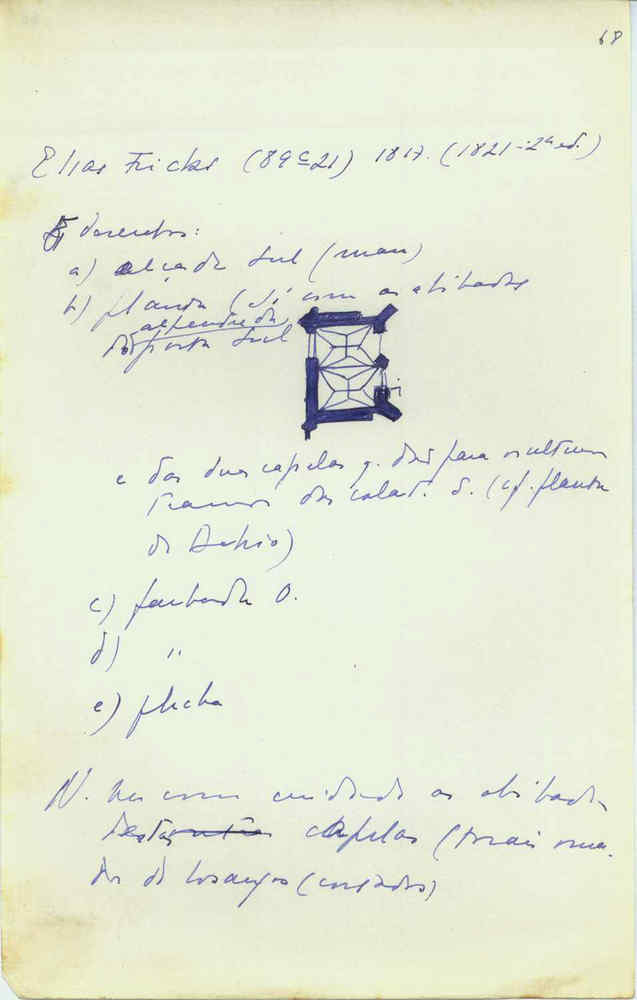 68
Elias Fricks (89 C 21) 1817. (1821 - 2ª ed.)
5 desenhos:
a) alçado Sul (mau)
b) planta (só com as abóbadas
alpendre da
da porta Sul
e das duas capelas q. dão para o último
tramo da colat. S. (cf. planta
do Dehio)
c) fachada O.
d) "
e) flecha
N. Ver com cuidado as abóbadas
destas capelas (mais
de losangos (cortados)